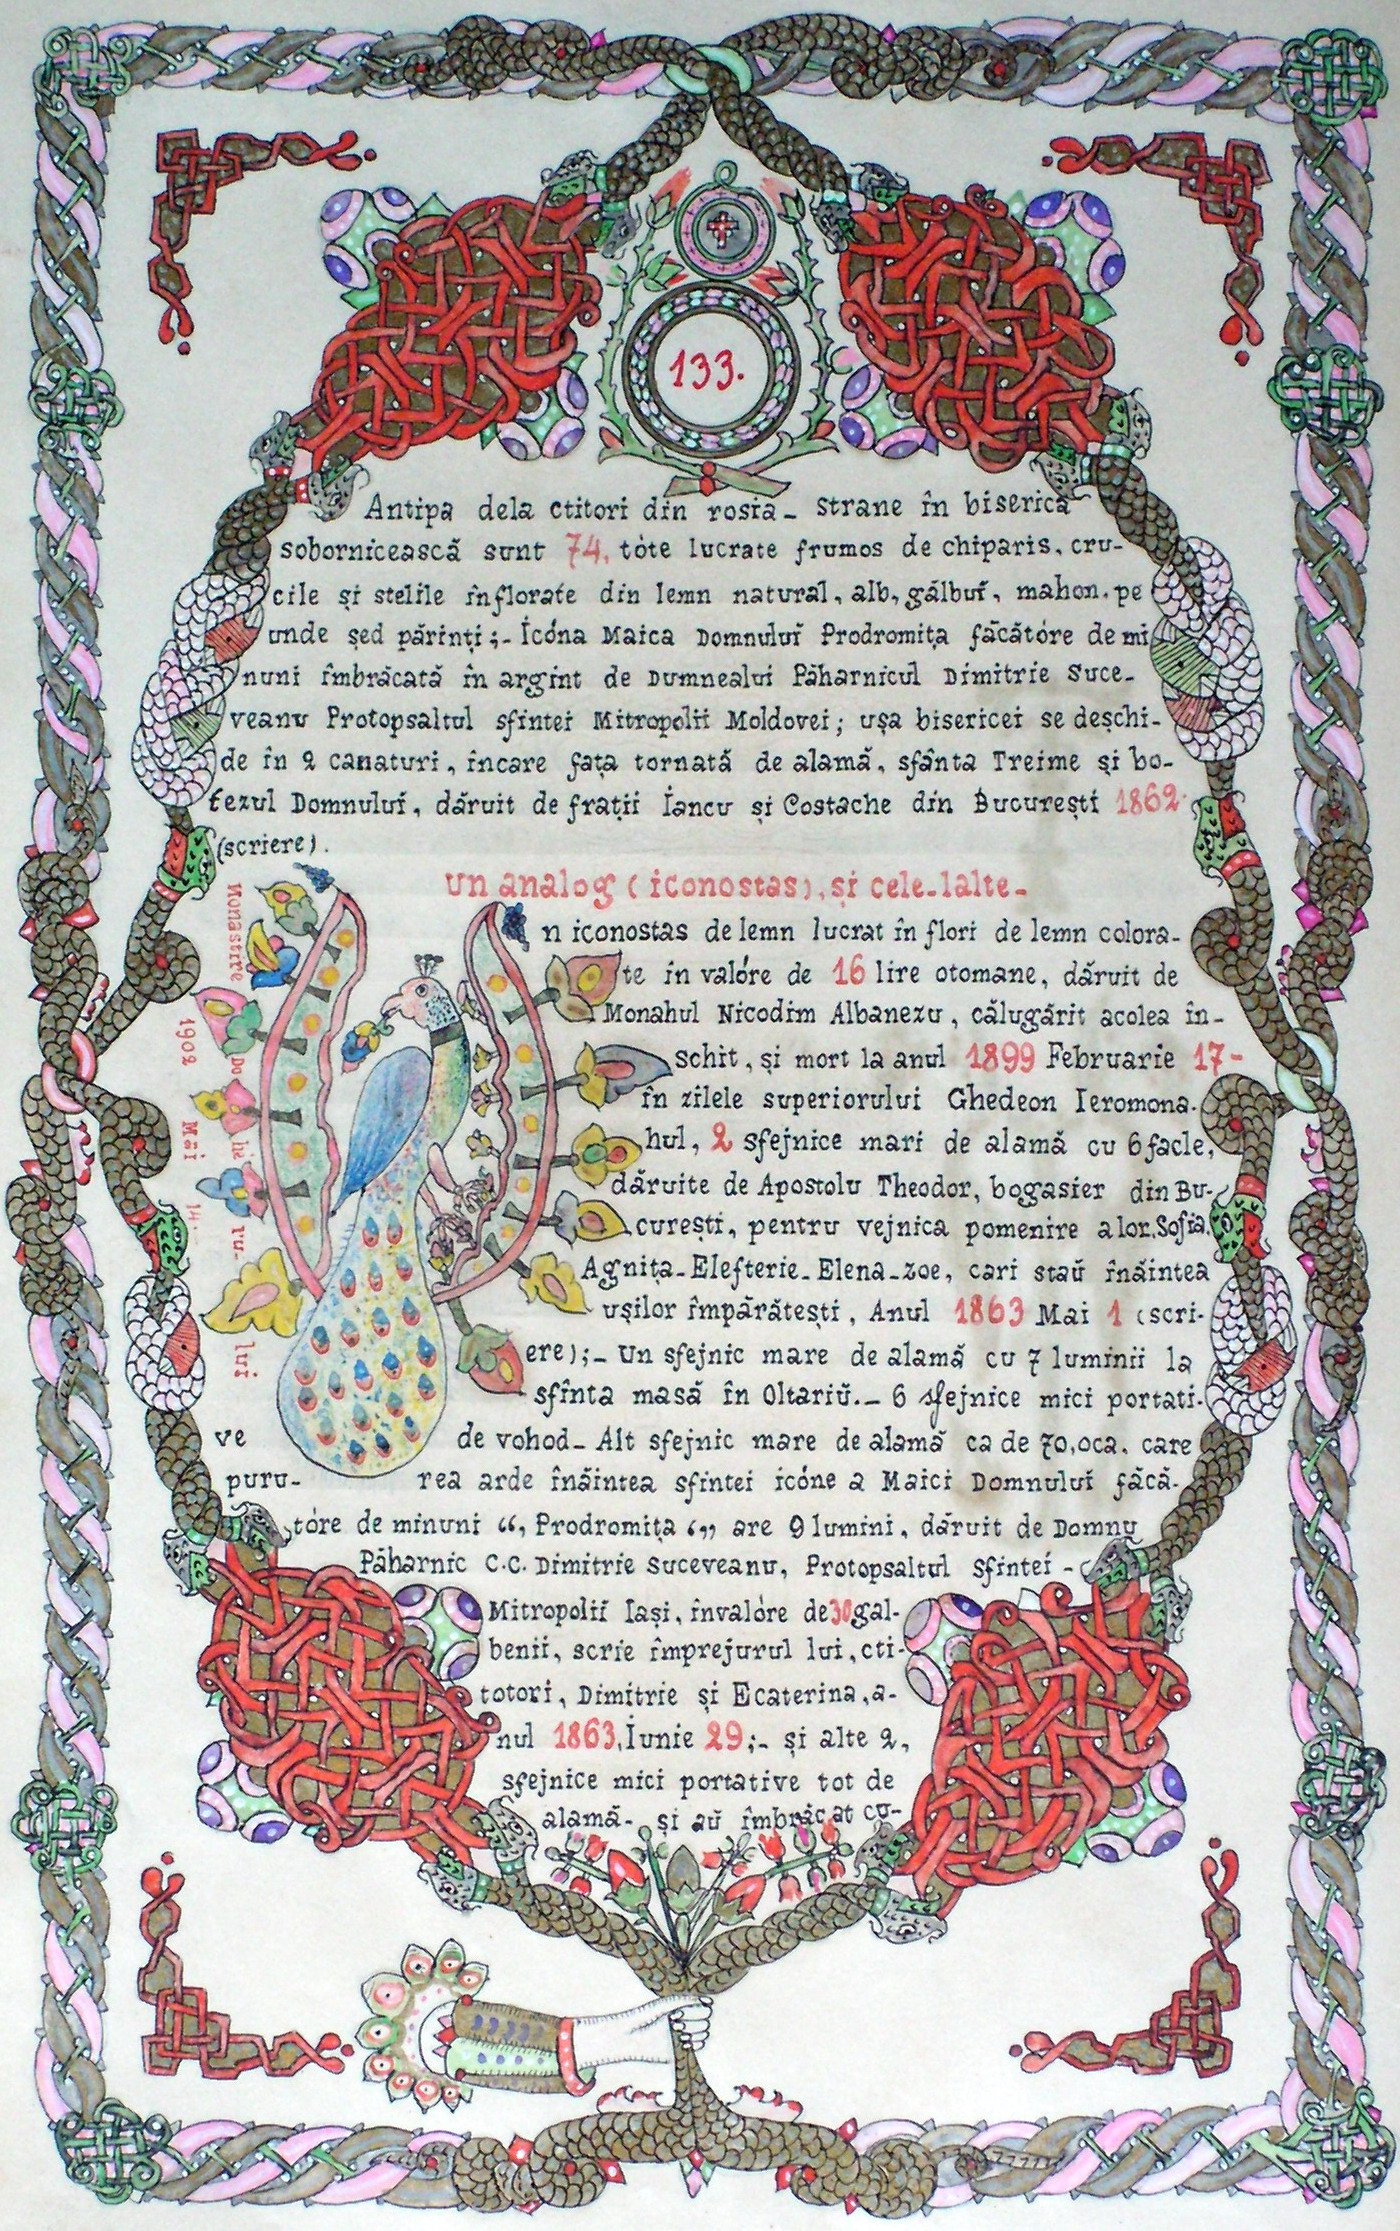 133.
Antipa dela ctitori din rosia_ strane în biserica
sobornicească sunt 74, tóte lucrate frumos de chiparis, cru-
cile și stelile înflorate din lemn natural, alb, gălbuĭ, mahon, pe
unde șed părinți;- Icóna Maica Domnuluĭ Prodromița făcătóre de mi
nuni îmbrăcată în argint de Dumnealui Păharnicul Dimitrie Suce-
veanu Protopsaltul sfintei Mitropolii Moldovei; ușa bisericei se deschi-
de în 2 canaturi, încare fața tornată de alamă, sfânta Treime și bo-
tezul Domnuluĭ, dăruit de frații Iancu și Costache din București 1862
(scriere).
Un analog (iconostas), și cele-lalte-
n iconostas de lemn lucrat în flori de lemn colora-
te în valóre de 16 lire otomane, dăruit de
Monahul Nicodim Albanezu, călugărit acolea în-
schit, și mort la anul 1899 Februarie 17-
în zilele superiorului Ghedeon Ieromona.
hul, 2 sfejnice mari de alamă cu 6 facle,
dăruite de Apostolu Theodor, bogasier din Bu-
curești, pentru vejnica pomenire a lor, Sofia,
Agnița-Elefterie-Elena-zoe, cari staŭ înăintea
ușilor împărătești, Anul 1863 Mai 1 (scri-
ere);- Un sfejnic mare de alamă cu 7 luminii la
sfînta masă în Oltariŭ.- 6 sfejnice mici portati-
ve de vohod- Alt sfejnic mare de alamă ca de 70, oca, care
puru- rea arde înăintea sfintei icóne a Maici Domnuluĭ făcă-
tóre de minuni “, Prodromița „ are 9 lumini, dăruit de Domnu
Păharnic C.C. Dimitrie Suceveanu, Protopsaltul Sfintei -
Mitropolii Iași, învalóre de 30 gal-
benii, scrie împrejurul lui, cti-
totori, Dimitrie și Ecaterina, a-
nul 1863, Iunie 29;- și alte 2,
sfejnice mici portative tot de
alamă- și aŭ îmbrăcat cu-
Monastree
Do
lie
ru-
lui
1902
Măi
14.